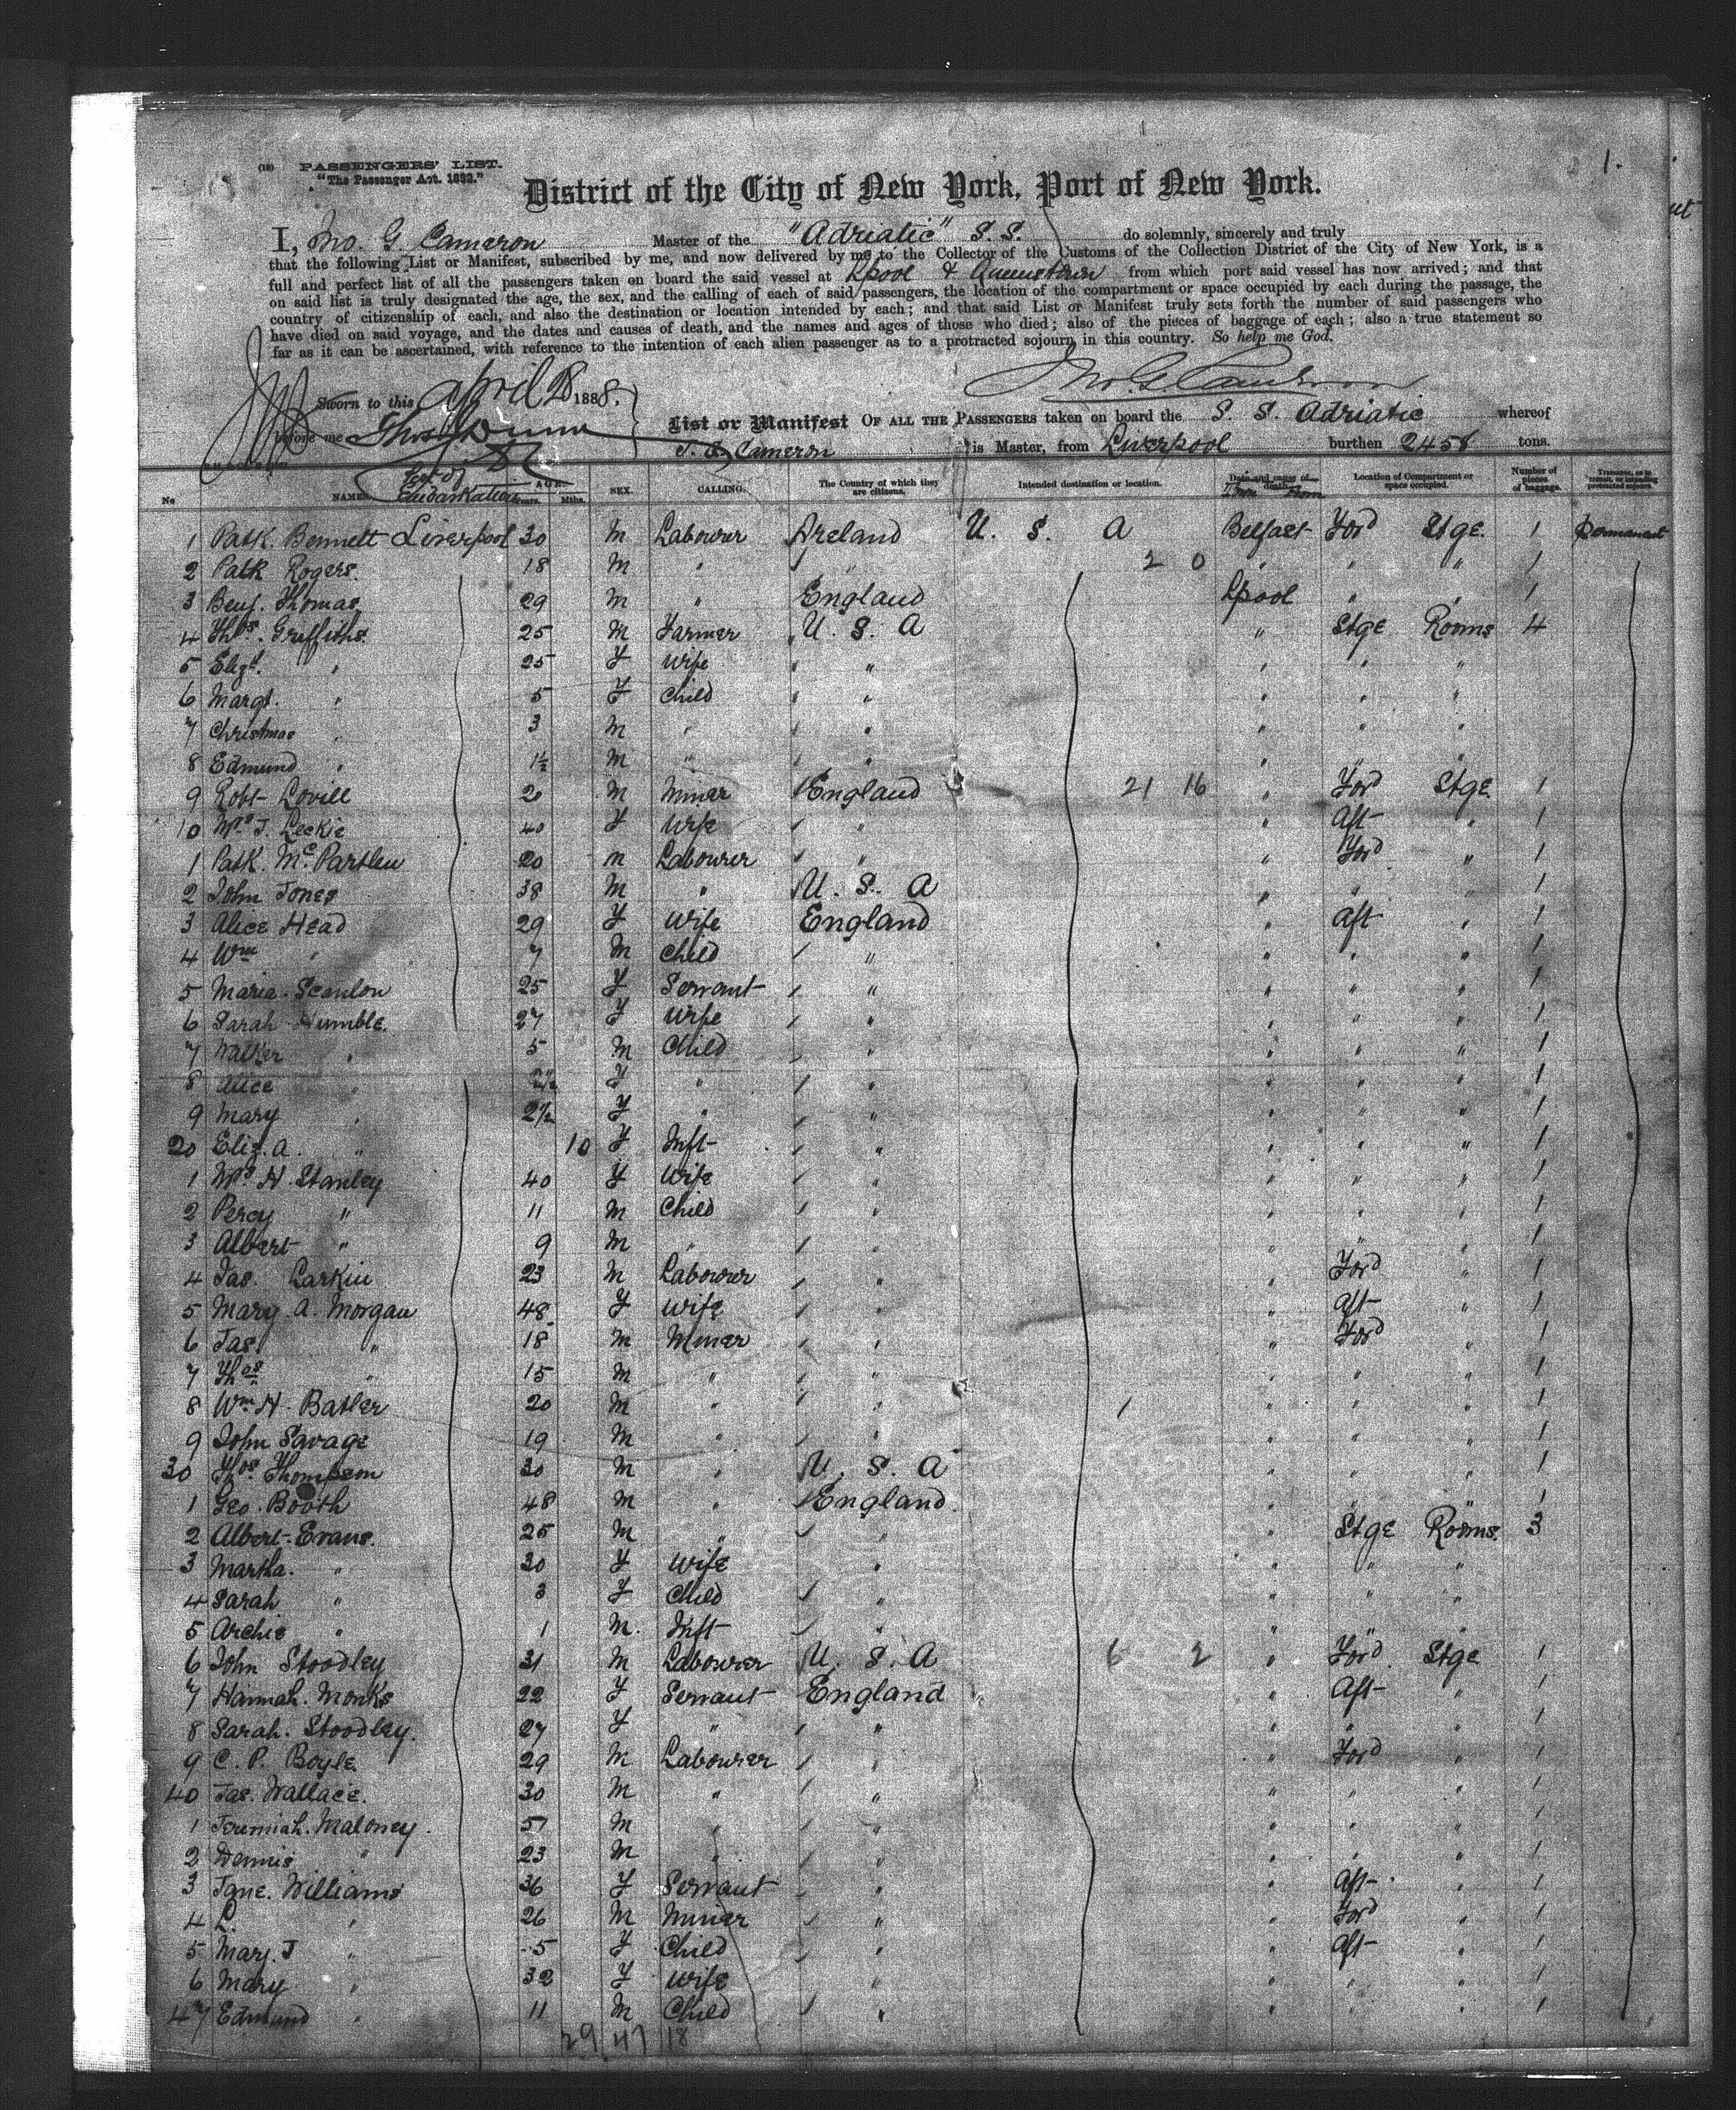 1.
(18) PASSENGERS' LIST.
"The Passenger Act. 1882."
District of the City of New York, Port of New York.
I, Jno. G. Cameron Master of the "Adriatic" S. S. do solemnly, sincerely and truly
that the following List or Manifest, subscribed by me, and now delivered by me to the Collector of the Customs of the Collection District of the City of New York, is a
full and perfect list of all the passengers taken on board the said vessel at Lpool & Queenstown from which port said vessel has now arrived; and that
on said list is truly designated the age, the sex, and the calling of each of said passengers, the location of the compartment or space occupied by each during the passage, the
country of citizenship of each, and also the destination or location intended by each; and that said List or Manifest truly sets forth the number of said passengers who
have died on said voyage, and the dates and causes of death, and the names and ages of those who died; also of the pieces of baggage of each; also a true statement so
far as it can be ascertained, with reference to the intention of each alien passenger as to a protracted sojourn in this country. So help me God.
Jno. G. Cameron
Sworn to this April 1888.
before me
List or Manifest OF ALL THE PASSENGERS taken on board the S. S. Adriatic whereof
J. G. Cameron is Master, from Liverpool burthen 2458 tons.
No NAMES. AGE. Years. Mths. SEX. CALLING. The Country of which they are citizens. Intended destination or location. Date and cause of death. From Location of Compartment or space occupied. Number of pieces of baggage.
1 Patk. Bennett Liverpool 30 M Labourer Ireland U. S. A Belfast Ford Stge. 1 Permanent
2 Patk Rogers. 18 M " " 2 0 " " " 1
3 Benj. Thomas 29 M " England Lpool " " 1
4 Thos. Griffiths 25 M Farmer U. S. A " Stge Rooms 4
5 Elizt. " 25 F Wife " " " " "
6 Margt. " 5 F Child " " " " "
7 Christmas " 3 M " " " " " "
8 Edmund " 1½ M " " " " " "
9 Robt Lovill 20 M Miner England 21 16 " Ford Stge 1
10 Mrs J. Leckie 40 F Wife " " Aft " 1
1 Patk. McPartlen 20 M Labourer " " Ford " 1
2 John Jones 38 M " U. S. A " " " 1
3 Alice Head 29 F Wife England " Aft " 1
4 Wm " 7 M Child " " " " 1
5 Maria Scanlon 25 F Servant " " " " 1
6 Sarah Humble. 27 F Wife " " " " 1
7 Walker " 5 M Child " " " " 1
8 Alice " F " " " " " 1
9 Mary " 2½ F " " " " " 1
20 Eliz. A. " 10 F Inft " " " " 1
1 Mrs H. Stanley 40 F Wife " " " " 1
2 Percy " 11 M Child " " " " 1
3 Albert " 9 M " " " " " 1
4 Jas. Larkin 23 M Labourer " " Ford " 1
5 Mary. A. Morgan 48 F Wife " " Aft " 1
6 Jas. " 18 M Miner " " Ford " 1
7 Thos. " 15 M " " " " " 1
8 Wm H. Batler 20 M " " 1 " " " 1
9 John Savage 19 M " " " " " 1
30 Thos Thompson 30 M " U. S. A " " " 1
1 Geo. Booth 48 M " England " " " 1
2 Albert Evans. 25 M " " " Stge Rooms 3
3 Martha. " 30 F Wife " " " "
4 Sarah " 3 F Child " " " "
5 Archie " 1 M. Inft " " " "
6 John Stoodley 31 M Labourer U. S. A 6 2 " Ford Stge 1
7 Hannah. Monks 22 F Servant England " Aft " 1
8 Sarah. Stoodley. 27 F " " " " " 1
9 C. P. Boyle. 29 M Labourer " " Ford " 1
40 Jas. Wallace. 30 M " " " " " 1
1 Jeremiah. Maloney. 51 M " " " " " 1
2 Dennis " 23 M " " " " " 1
3 Jane. Williams 36 F Servant " " Aft " 1
4 L. " 26 M Miner " " Ford " 1
5 Mary. J " 5 F Child " " Aft " 1
6 Mary " 32 F Wife " " " " 1
47 Edmund " 11 M Child " " " " 1
29 47 18